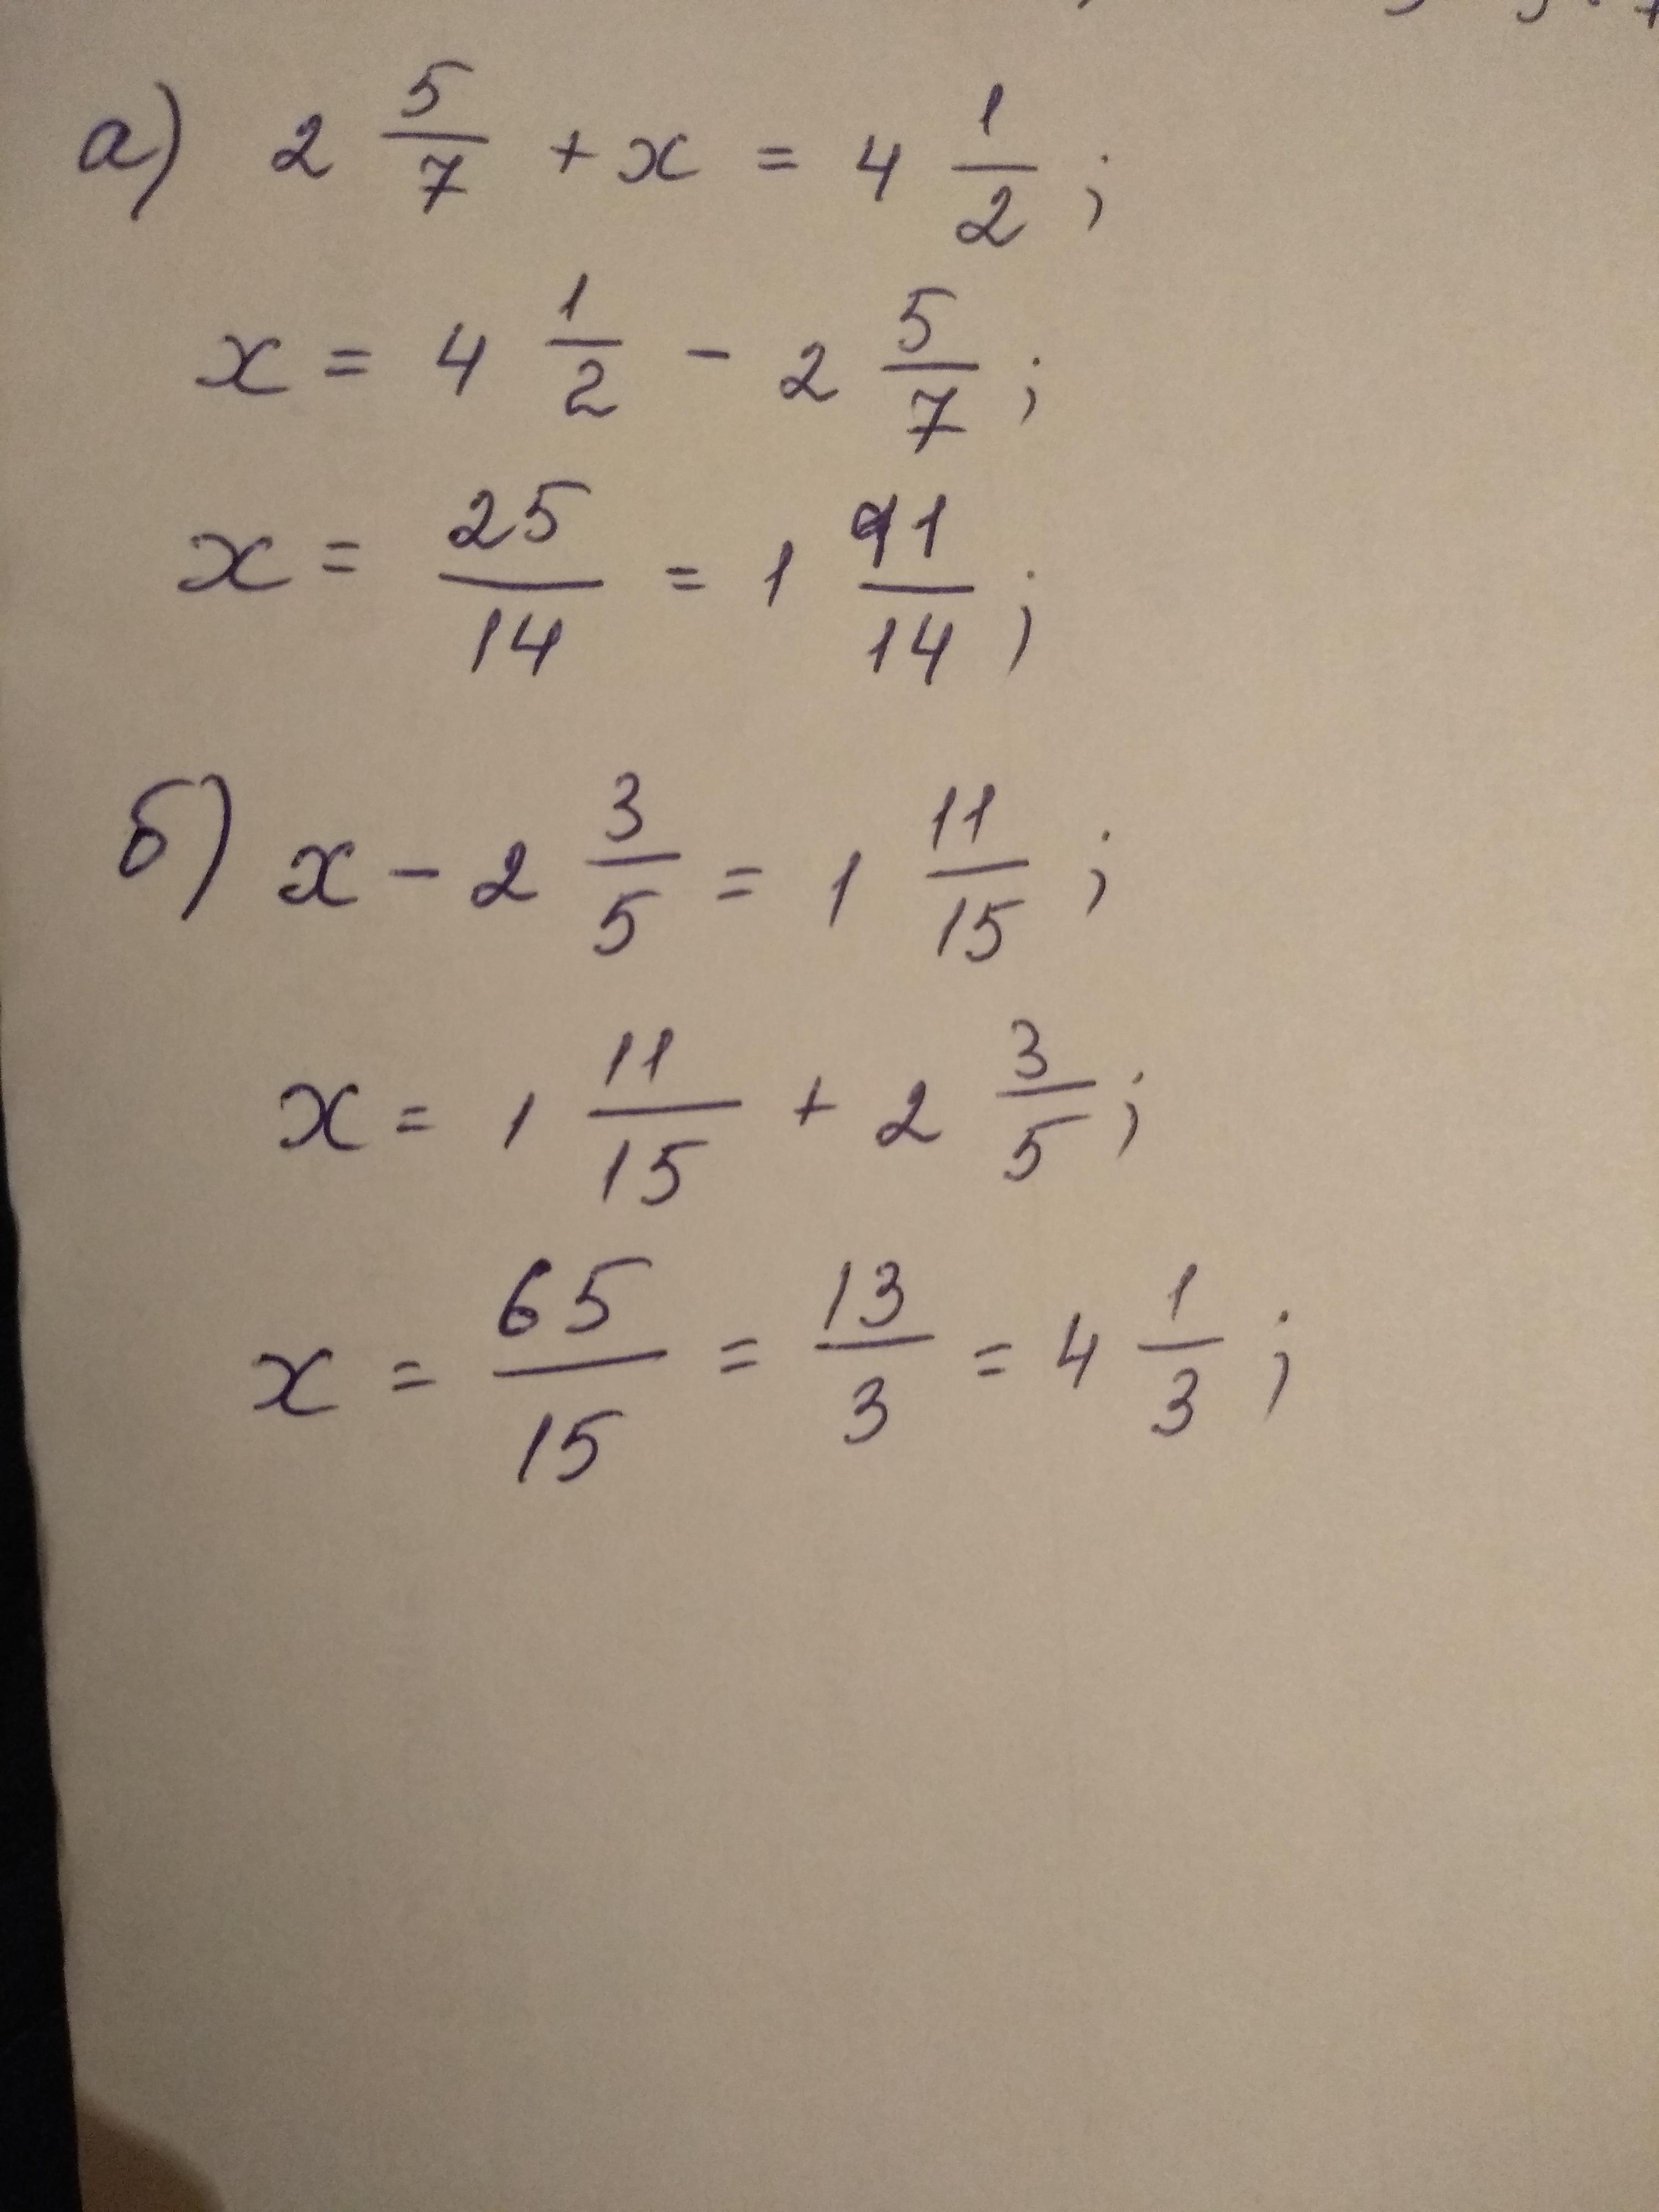 а) 2 5/7 + x = 4 1/2 ;
x = 4 1/2 - 2 5/7 ;
x = 25/14 = 1 11/14 ;
б) x - 2 3/5 = 1 11/15 ;
x = 1 11/15 + 2 3/5 ;
x = 65/15 = 13/3 = 4 1/3 ;